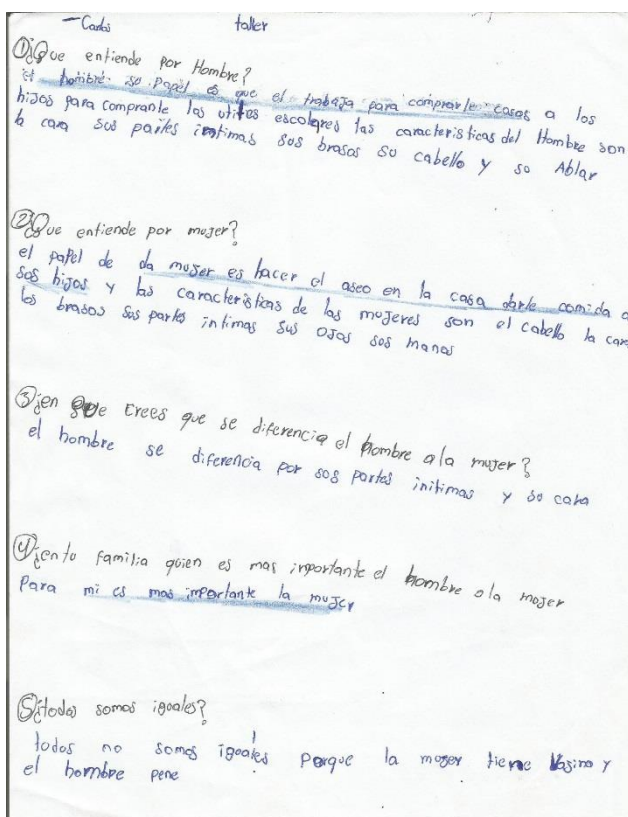 - Carlos taller
① ¿Que entiende por Hombre?
el hombre: so papel es que el trabaja para comprarle casas a los
hijos para comprarle las utiles escolares las caracteristicas del Hombre son
la cara sus partes intimas sus brasas su cabello y so Ablar
② ¿Que entiende por mujer?
el papel de da mujer es hacer el aseo en la casa darle comida a
sos hijos y las caracteristicas de las mujeres son el cabello la cara
los brasos sus partes intimas sus ojos sos manos
③ ¿en que crees que se diferencia el hombre a la mujer?
el hombre se diferencia por sos partes initimas y so cara
④ ¿en tu familia quien es mas inportante el hombre o la mojer
Para mi es mas importante la mujer
⑤ ¿todos somos igoales?
todos no somos igoales porque la mojer tiene Vasina y
el hombre pene